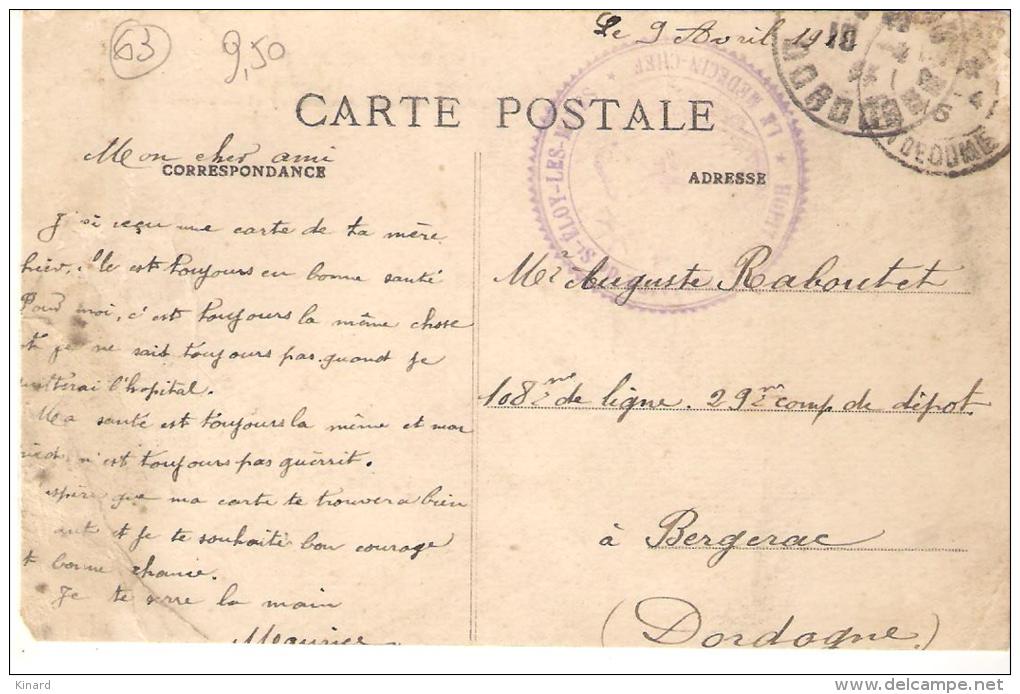 63
9,50
Le 9 Avril 19
CARTE POSTALE
LE MÉDECIN-CHEF
St ELOY-LES-
DORDOGNE
Mon cher ami
CORRESPONDANCE
ADRESSE
J'ai reçu une carte de ta mère
hier, elle est toujours en bonne santé
Pour moi, c'est toujours la même chose
et je ne sait toujours pas quand je
quitterai l'hopital.
Ma santé est toujours la même et mon
pied n'est toujours pas guérrit.
espère que ma carte te trouvera bien
ant et je te souhaite bon courage
et bonne chance.
Je te serre la main
Maurice
Mr Auguste Raboutet
108me de ligne. 29me comp. de dépot.
à Bergerac
(Dordogne)
Kinard
delcampe.net